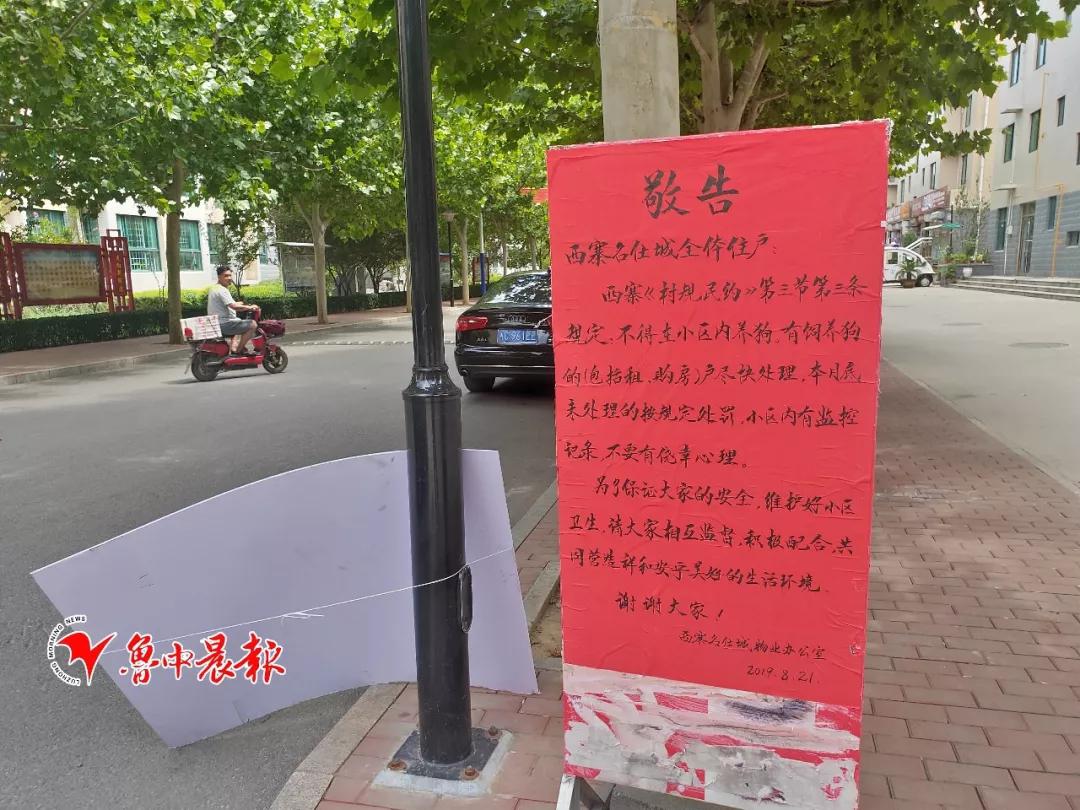 敬告
西寨名仕城全体住户：
西寨《村规民约》第三节第三条
规定，不得在小区内养狗。有饲养狗
的（包括租、购房）户尽快处理，本月底
未处理的按规定处罚，小区内有监控
记录，不要有侥幸心理。
为了保证大家的安全，维护好小区
卫生，请大家相互监督，积极配合，共
同营造祥和安乎美好的生活环境。
谢谢大家！
西寨名仕城物业办公室
2019.8.21.
LUZHONG MORNING NEWS
鲁中晨报